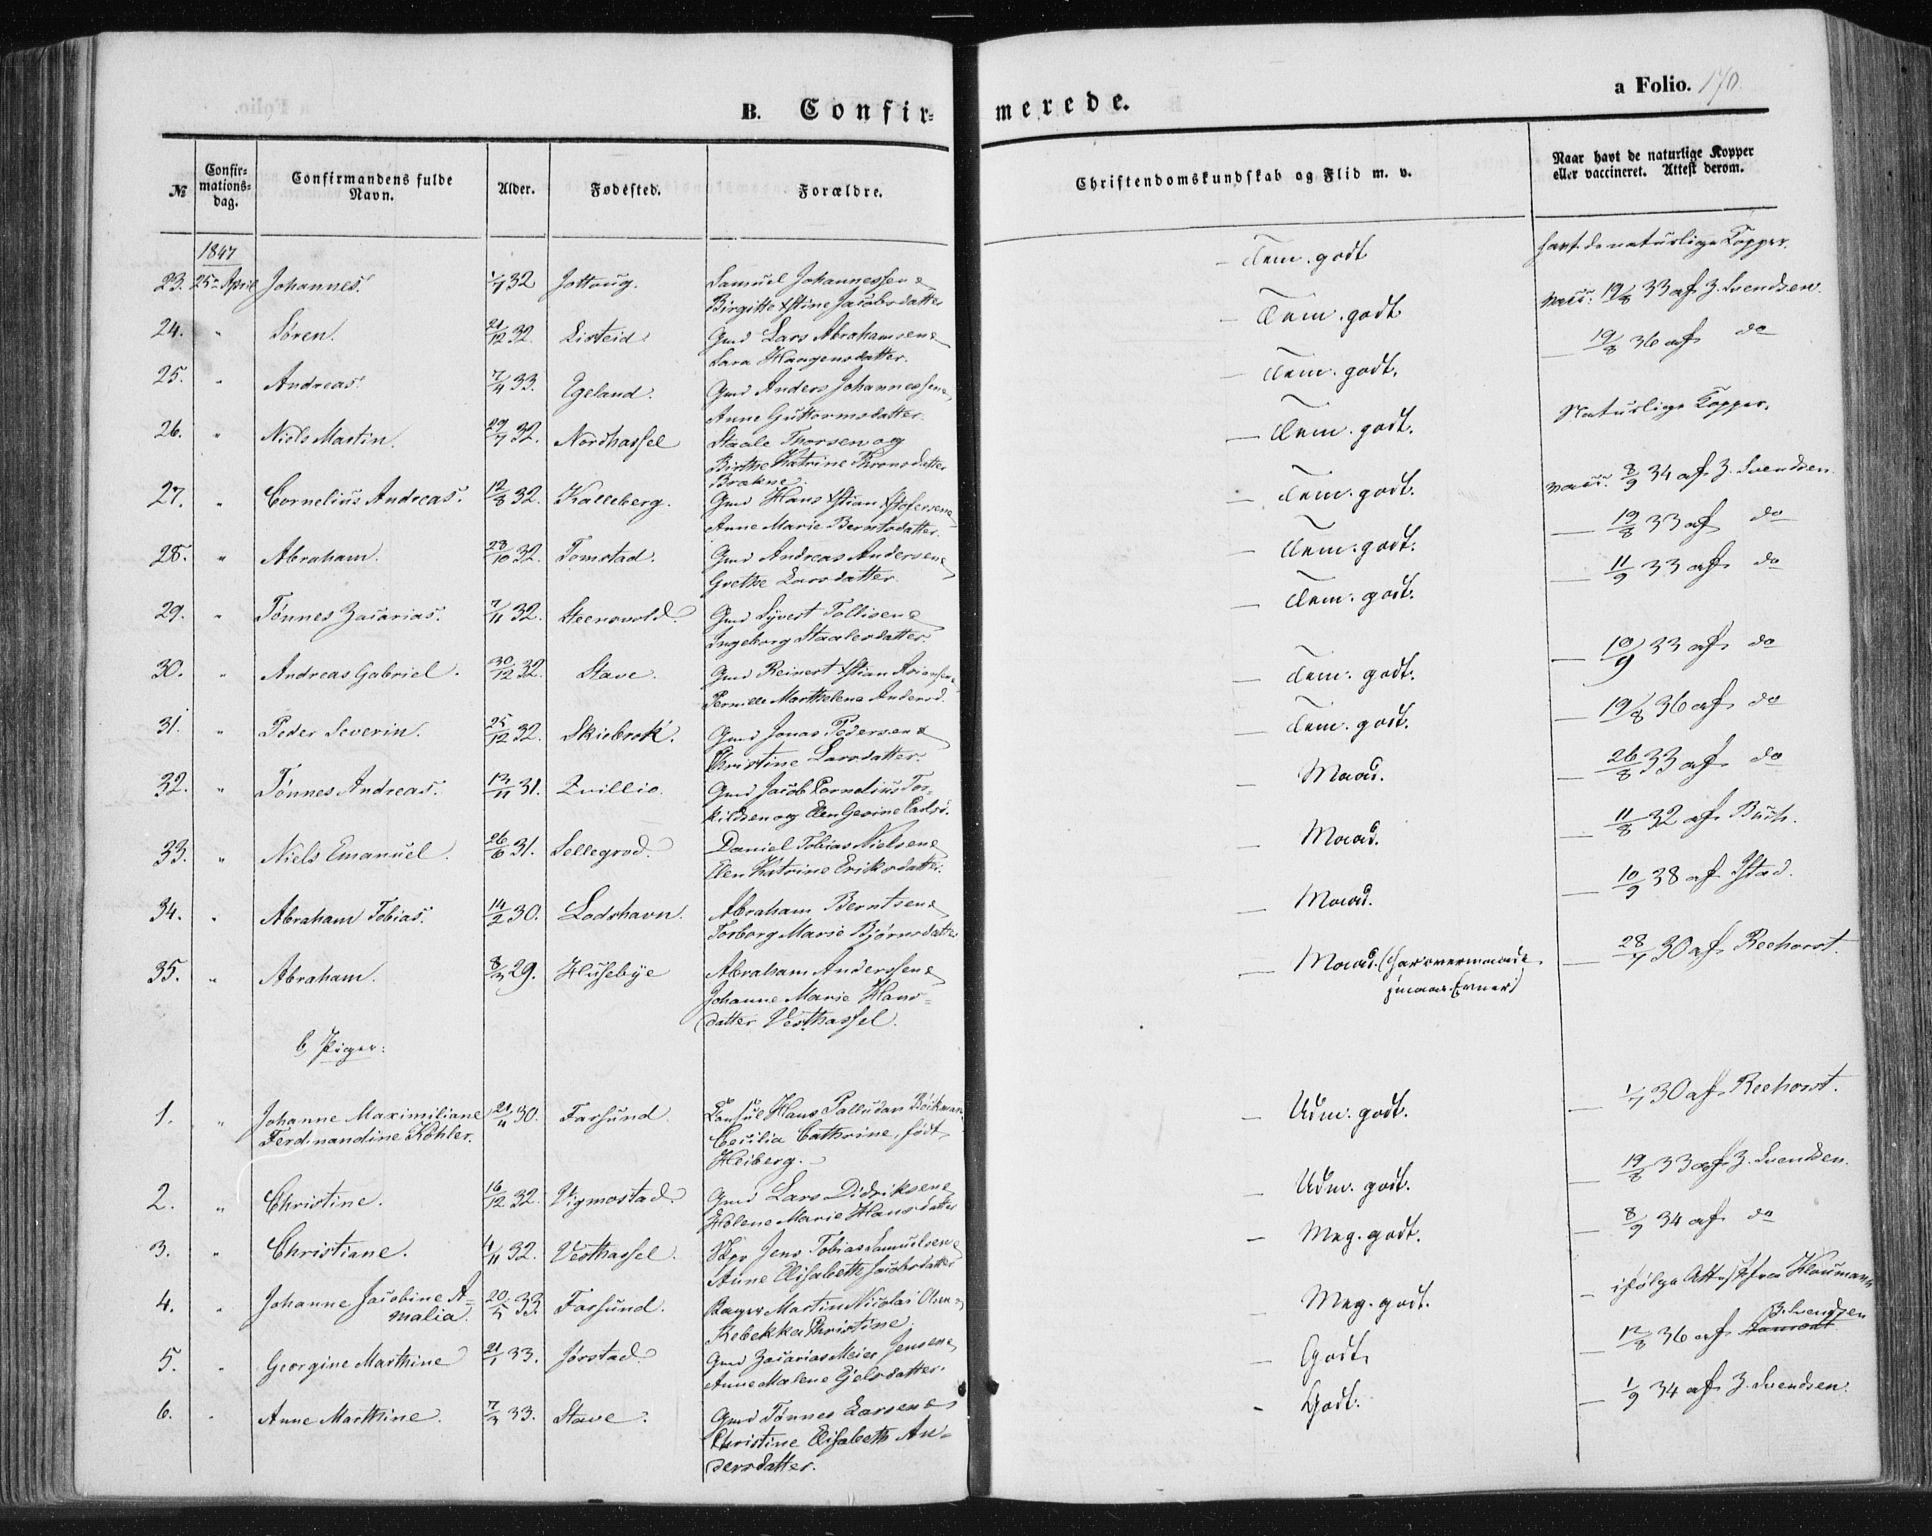 a Folio. 170.
B. Confir- merede.
№ Confir-mations-dag. Confirmandens fulde Navn. Alder. Fødested. Forældre. Christendomskundskab og Flid m. v. Naar havt de naturlige Kopper eller vaccineret. Attest derom.
1847
23. 25de April Johannes. 1/7 32 Jottoug. Samuel Johannessen & Tem. godt havt de naturlige Kopper.
Birgitte Xstine Jacobsdatter
24. " Søren. 21/12 32. Listeid. Gmd Lars Abrahamsen & — Tem. godt vacc. 19/8 33 af Z. Svendsen.
Sara Haagensdatter.
25. " Andreas. 7/4 33. Egeland. Gmd Anders Johannessen & — Tem. godt. — 19/8 36 af do
Anne Guttormsdatter.
26. " Niels Martin. 29/7 32. Nordhassel Staale Thorsen og — Tem. godt. Naturlige Kopper.
Birthe Katrine Thorsdatter
Brækne.
27. " Cornelius Andreas. 12/8 32. Kalleberg. Gmd Hans Xstian Xstofersen & — Tem. godt. vacc. 8/9 34 af Z. Svendsen.
Anne Marie Berntsdatter.
28. " Abraham. 28/10 32. Tomstad. Gmd Andreas Andersen & — Tem. godt. — 19/8 33 af do
Grethe Larsdatter.
29. " Tønnes Zacarias. 7/11 32. Steensvold. Gmd Syvert Tollisen & — Tem. godt. — 11/9 33 af do
Ingeborg Staalesdatter.
30. " Andreas Gabriel. 30/12 32. Stave. Gmd Reinert Xstian Ariansen & — Tem. godt. — 10/9 33 af do
Pernille Marthelena Andersd.
31. " Peder Severin. 25/12 32. Skiebrok. Gmd Jonas Pedersen & — Tem. godt. — 19/8 36 af do
Christine Larsdatter.
32. " Tønnes Andreas. 13/11 31. Qvillio. Gmd Jacob Cornelius Tor- — Maad. — 26/8 33 af do
kildsen og Elen Gesine Carlsd.
33. " Niels Emanuel. 26/6 31. Sellegrod. Daniel Tobias Nielsen & — Maad. — 11/8 32 af Buch.
Elen Katrine Eriksdatter.
34. " Abraham Tobias. 14/2 30. Lodshavn. Abraham Berntsen & — Maad. — 10/9 38 af Ystad.
Torborg Marie Bjørnsdatter
35. " Abraham. 8/3 29. Husebye Abraham Anderssen & — Maad. (har overmaade — 28/7 30 af Reehorst.
Johanne Marie Hans- smaae Evner)
datter Vesthassel.
b, Piger:
1. " Johanne Maximiliane 21/4 30. Farsund. Consul Hans Palludan Bøikmann — Udm. godt. — 1/7 30 af Reehorst.
Ferdinandine Køhler. Cecilia Cathrine, født
Heiberg.
2. " Christine. 16/12 32. Vigmostad Gmd Lars Didriksen & — Udm. godt. — 19/8 33 af Z. Svendsen.
Helene Marie Hansdatter
3. " Christiane. 4/11 32. Vesthassel. Skpr Jens Tobias Samuelsen & — Meg. godt. — 8/9 34 af do
Anne Elisabeth Jacobsdatter
4. " Johanne Jacobine A- 20/5 33. Farsund. Bager Martin Nicolai Olsen & — Meg. godt. — ifølge Attest fra Klaumann
malia. Rebekka Christine.
5. " Georgine Marthine 21/1 33. Jørstad. Gmd Zacarias Meier Jensen & — Godt. — 12/8 36 af Z. Svendsen
Anne Malene Gjelsdatter.
6. " Anne Marthine. 7/3 33. Stave. Gmd Tønnes Larsen & — Godt. — 1/9 34 af Z. Svendsen.
Christine Elisabeth An-
dersdatter.